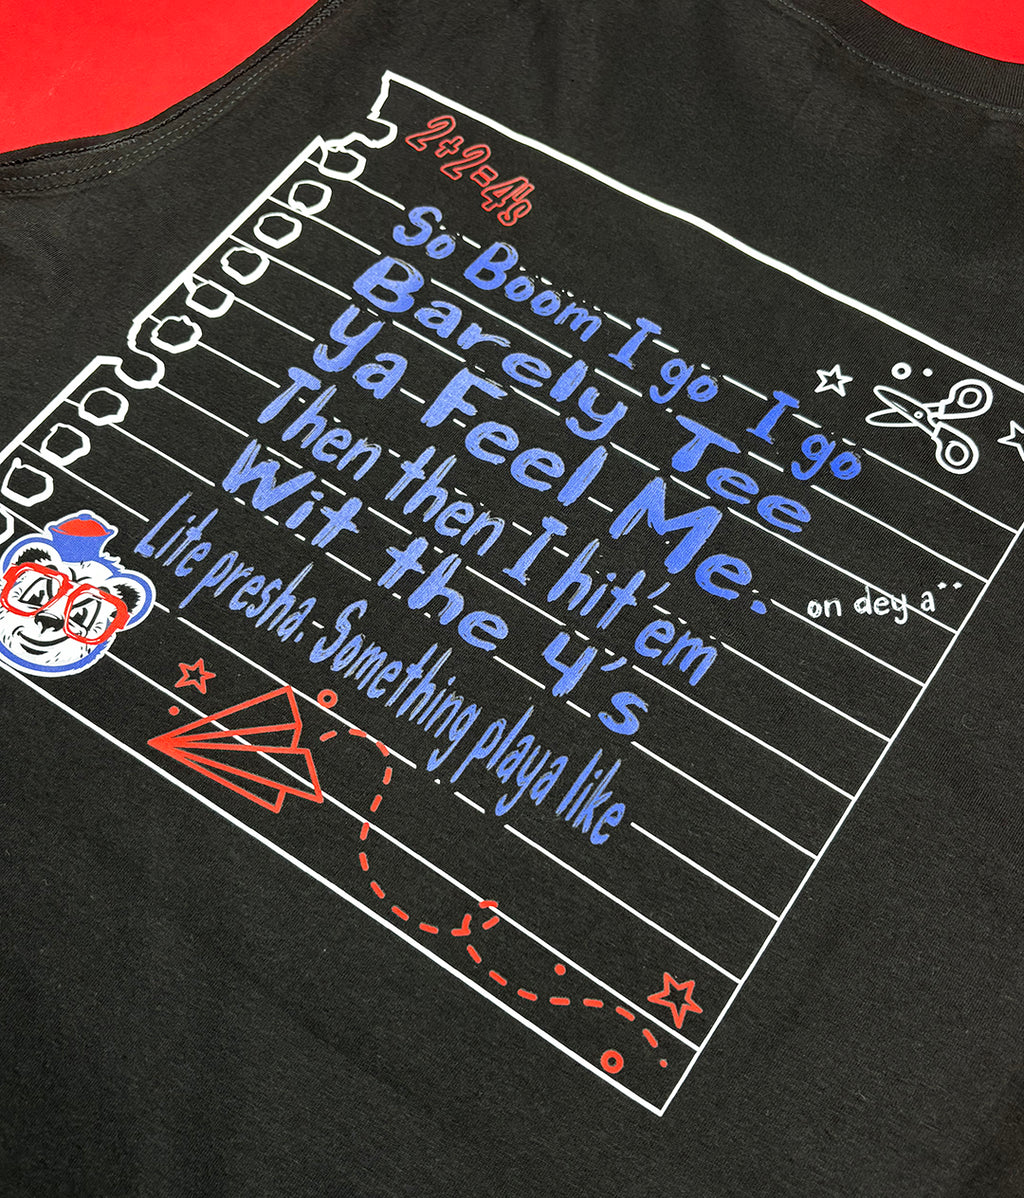 2+2=4's
So Boom I go I go
Barely Tee
ya Feel Me.
on dey a¨
Then then I hit'em
Wit the 4's
Lite presha. Something playa like